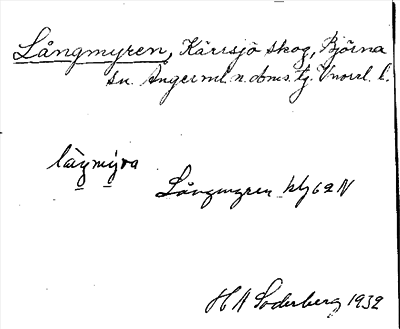 Långmyren, Kärrsjö skog, Björna
sn. Ångerml. n. doms. tj. Vnorrl. l.
låŋmy̱ra
Långmyren blg 62 N
H A Söderberg 1932